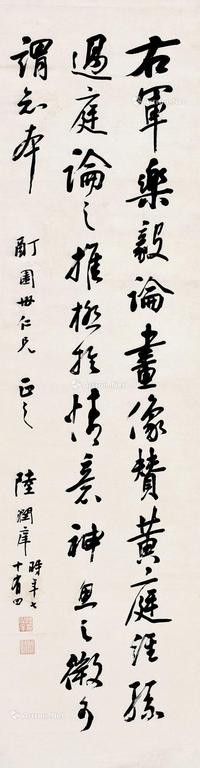 右軍樂毅論畫像贊黃庭經孫
過庭論之推極於情意神思之微可
謂知本
酊園世仁兄 正之
陸潤庠時年七十有四